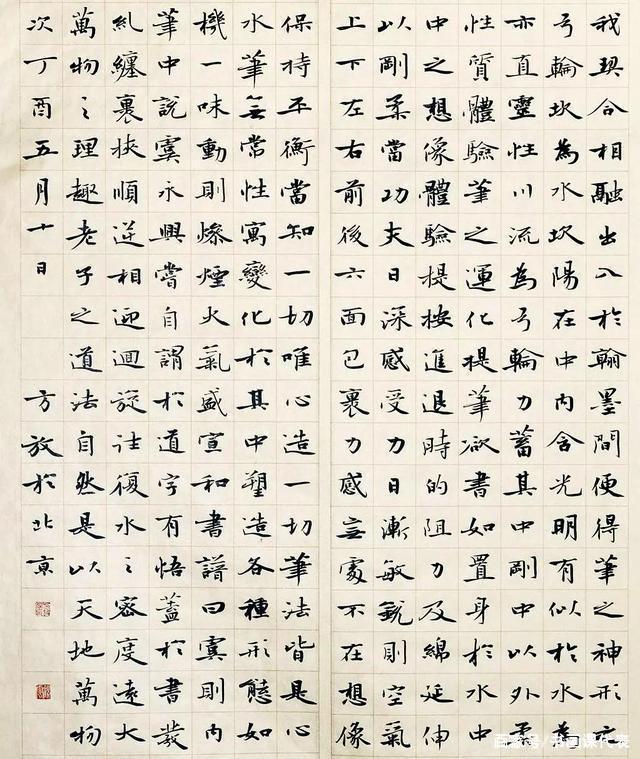 我契合相融出入於翰墨間便得筆之神形
弓輪坎為水坎陽在中內含光明有似於水為
亦直靈性川流為弓輪力蓄其中剛中以外柔
性質體驗筆之運化提筆欲書如置身於水中
中之想像體驗提按進退時的阻力及綿延伸
以剛柔當功夫日深感受力日漸敏銳則空氣
上下左右前後六面包裹力感無處不在想像
保持平衡當知一切唯心造一切筆法皆是心
水筆無常性寓變化於其中塑造各種形態如
機一味動則燥煙火氣盛宣和書譜曰虞則內
筆中說虞永興嘗自謂於道字有悟蓋於書發
糺纏裹挾順逆相迎迴旋往復水之密度遠大
萬物之理趣老子之道法自然是以天地萬物
次丁酉五月十日 方放於北京
百家号/书画课代表